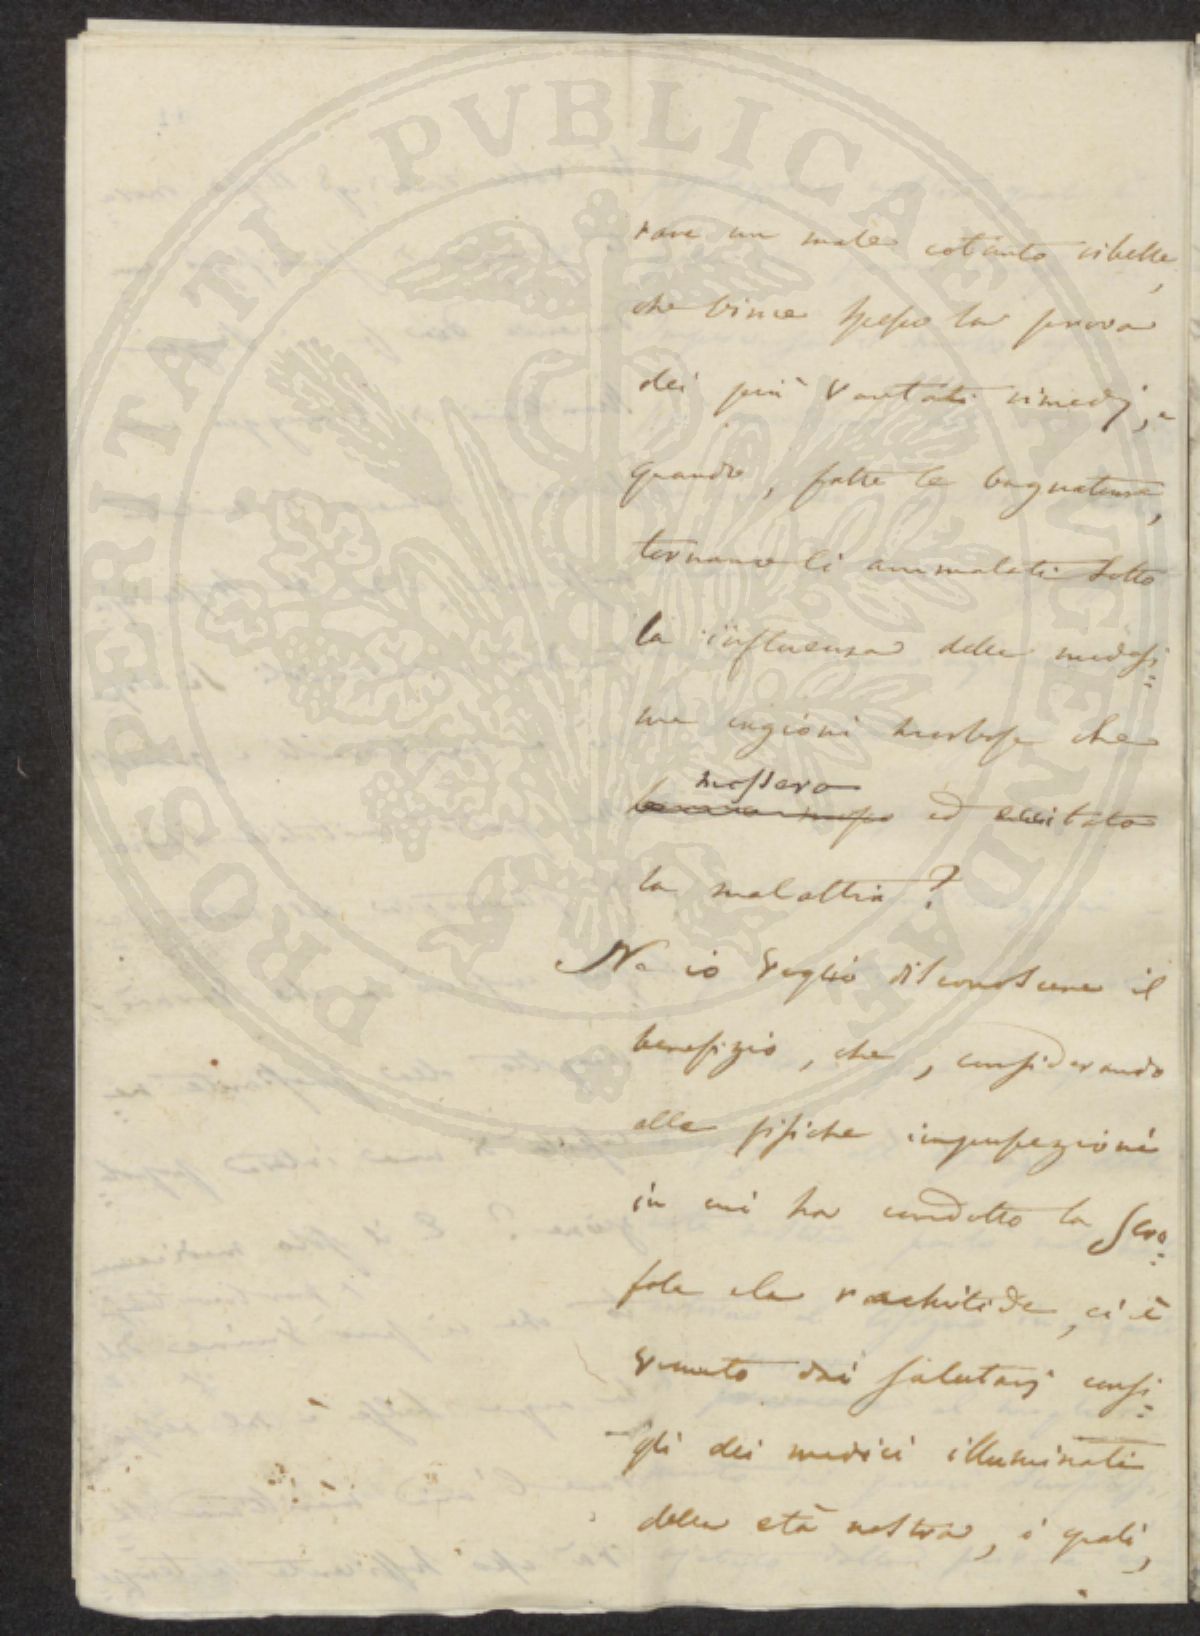 PROSPERITATI PVBLICAE AVGENDAE
rare un male cotanto ribelle,
che vince spesso la prova
dei più vantati rimedj, e
quando, fatte le bagnature,
tornano li ammalati sotto
la influenza delle medesi=
me cagioni morbose che
mossero
ed eccitato
la malattia?
Ne io voglio disconoscere il
benefizio, che, considerando
alle fisiche imperfezioni
in cui ha condotto la Scro=
fola e la rachitide, ci è
venuto dai salutarj consi=
gli dei medici illuminati
della età nostra, i quali,